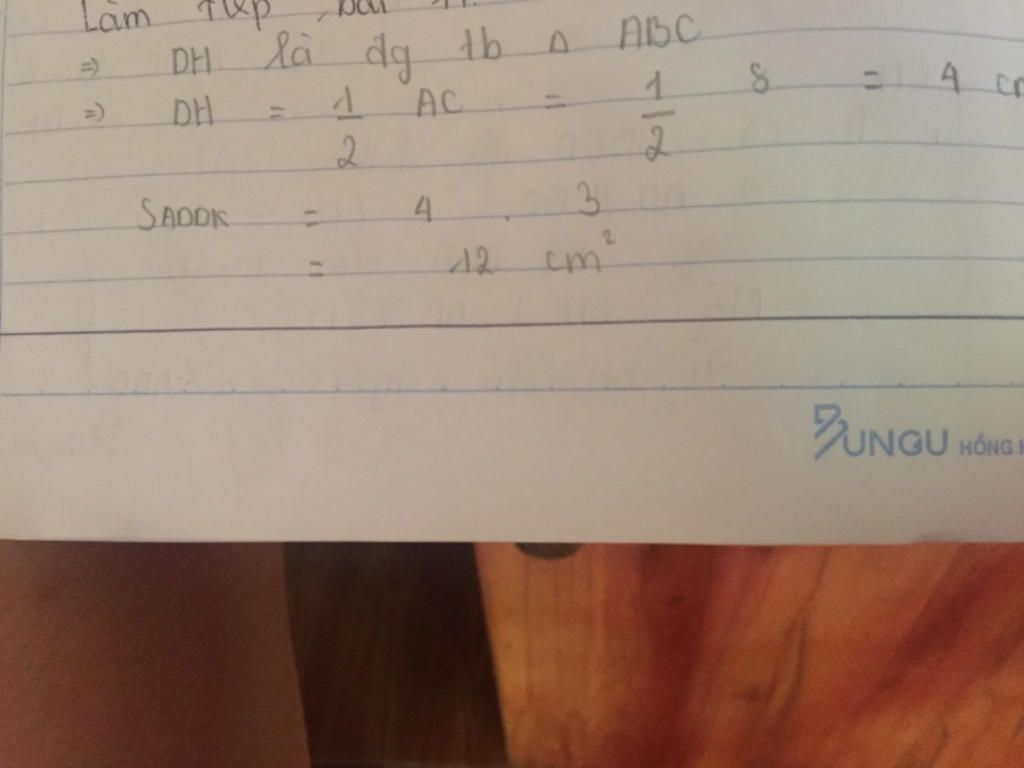 Làm tiếp bài
⇒ DH là đg tb Δ ABC
⇒ DH = 1/2 AC = 1/2 8 = 4 cm
SADDK = 4 . 3
= 12 cm²
BUNGU HỒNG H